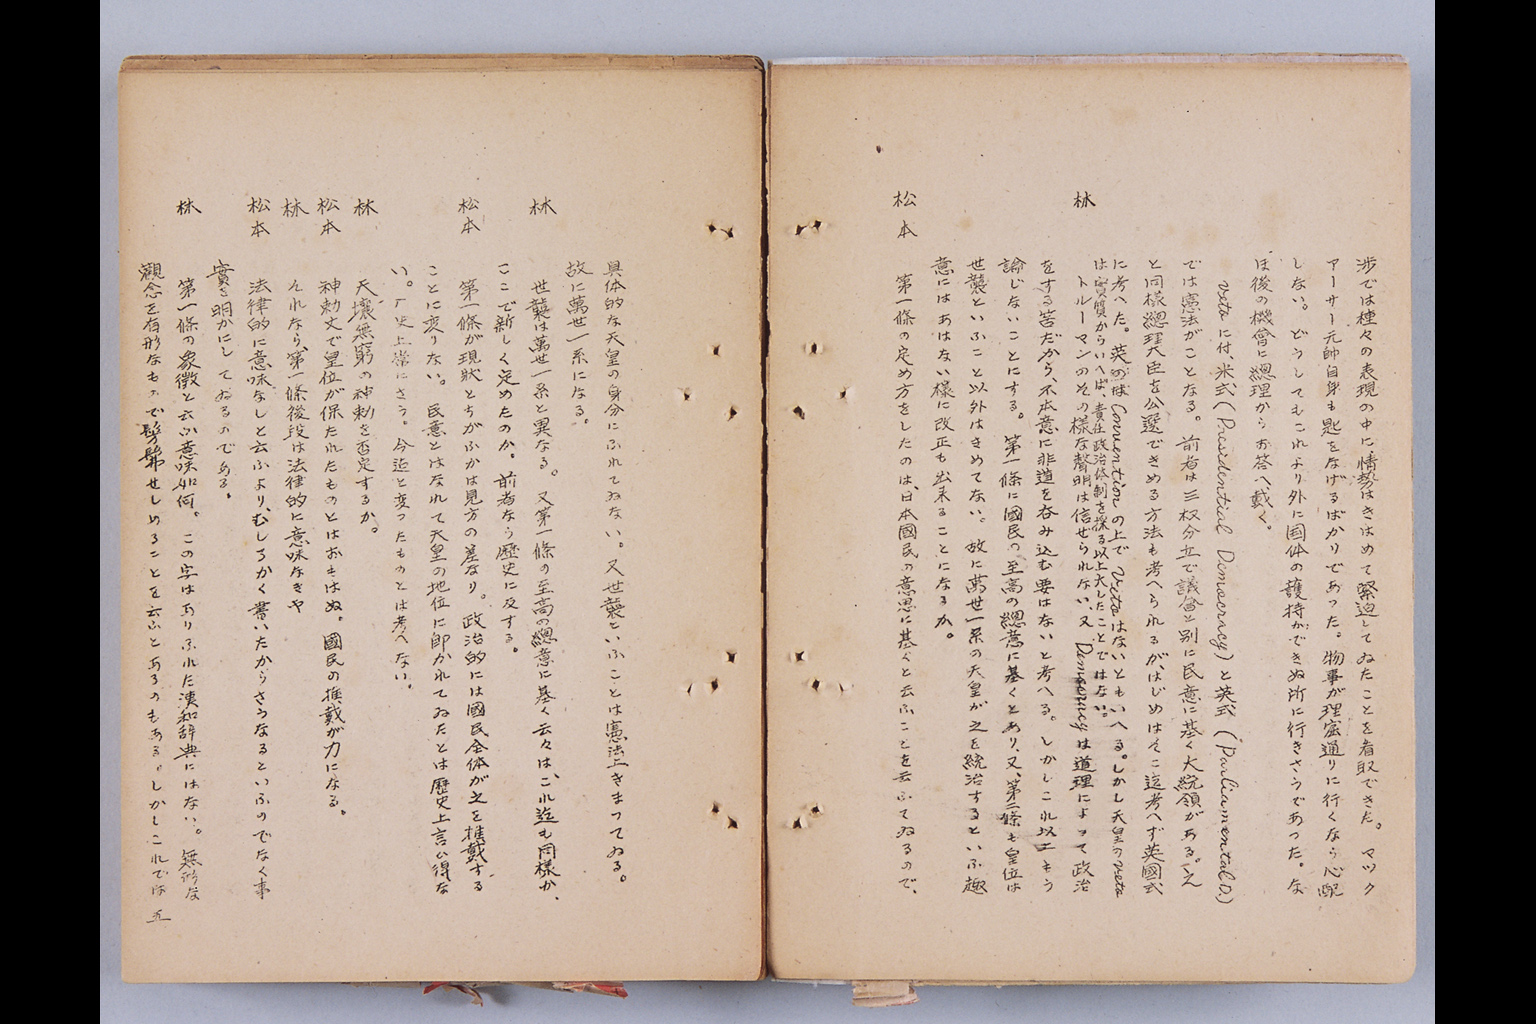 渉では種々の表現の中に情勢はきはめて緊迫してゐたことを看取できた。マツク
アーサー元帥自身も匙をなげるばかりであつた。物事が理窟通りに行くなら心配
しない。どうしてもこれより外に国体の護持ができぬ所に行きさうであつた。な
ほ後の機會に總理からお答へ戴く。
Vetoに付、米式(Presidential Democracy)と英式(Parliamental D.)
では憲法がことなる。前者は三权分立で議會と別に民意に基く大統領がある。さ
と同様總理大臣を公選できめる方法も考へられるが、はじめはそこ迄考へず英國式
に考へた。英のはConventionの上でVetoはないともいへる。しかし天皇のVeto
は実質からいへば、責任政治体制を採る以上大したことではない。
林 トルーマンのその様な聲明は信ぜられない、又Democracyは道理によつて政治
をする筈だから、不本意に非道を呑み込む要はないと考へる。しかしこれ以上もう
論じないことにする。第一條に國民の至高の總意に基くとあり、又、第二條も皇位は
世襲といふこと以外はきめてない。故に萬世一系の天皇が之を統治するといふ趣
意にはあはない様に改正も出来ることになるか。
松本 第一條の定め方をしたのは、日本國民の意思に基くと云ふことを云ふてゐるので、
具体的な天皇の身分にふれてゐない。又世襲といふことは憲法上きまつてゐる。
故に萬世一系になる。
林 世襲は萬世一系と異なる。又第一條の至高の總意に基く云々は、これ迄も同様か、
ここで新しく定めたのか。前者なら歴史に反する。
松本 第一條が現状とちがふかは見方の差なり。政治的には國民全体が之を推戴する
ことに変りない。民意とはなれて天皇の地位に即かれてゐたとは歴史上言ひ得な
い。厂史上常にさう。今迄と変つたものとは考へない。
林 天壌無窮の神勅を否定するか。
松本 神勅文で皇位が保たれたものとはおもはぬ。國民の推戴が力になる。
林 それなら、第一條後段は法律的に意味なきや
松本 法律的に意味なしと云ふより、むしろかく書いたからさうなるといふのでなく事
實を明かにしてゐるのである。
林 第一條の象徴と云ふ意味如何。この字はありふれた漢和辞典にはない。無形な
觀念を有形なもので髣髴せしめることを云ふとあるのもある。しかしこれでは
五